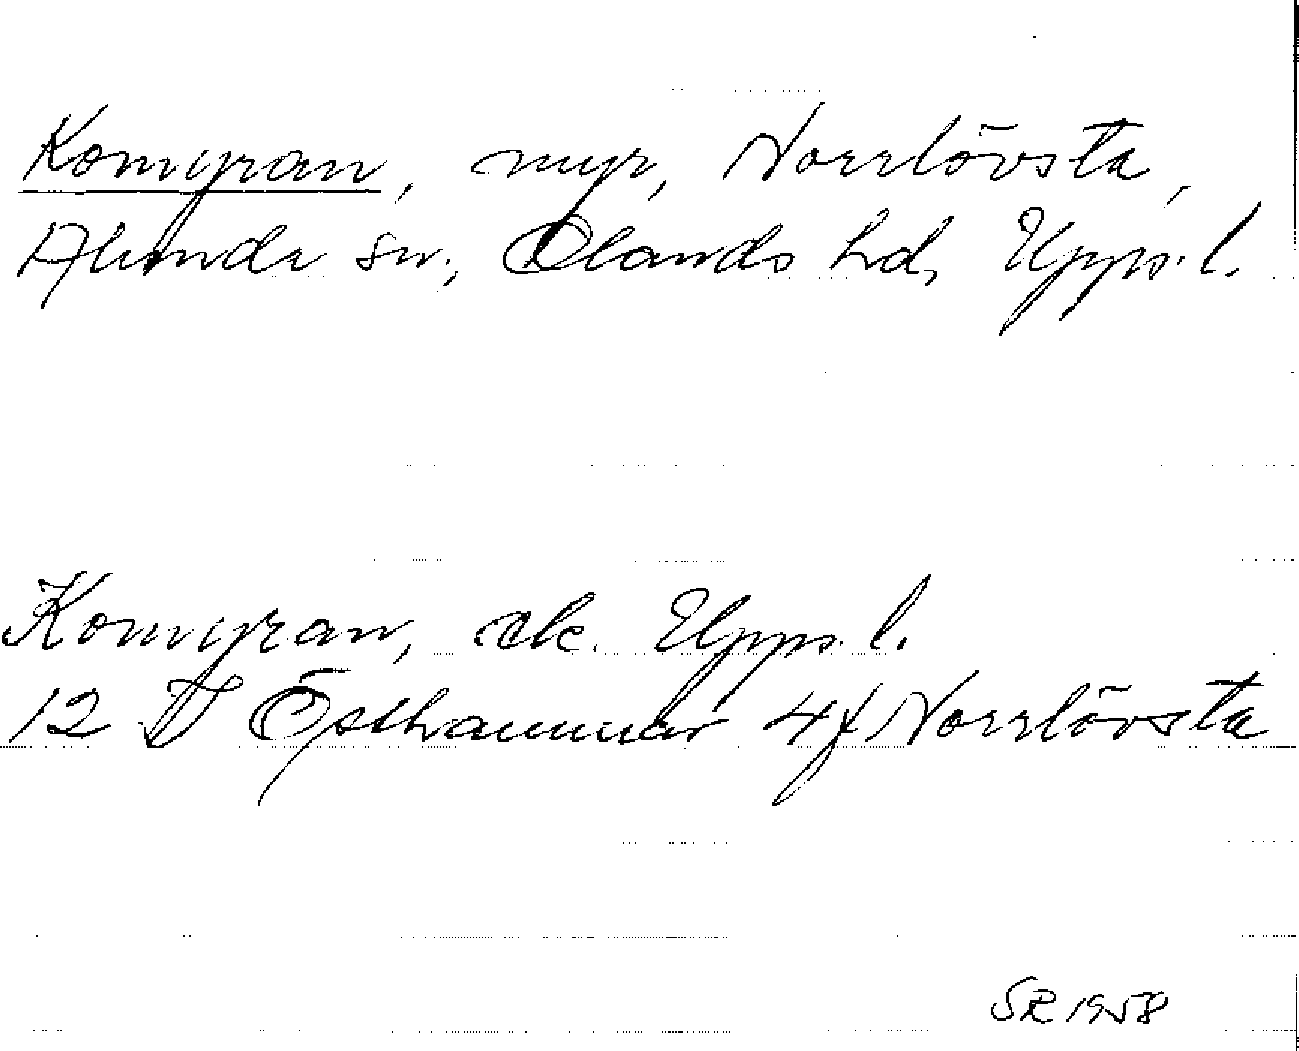 Komyran, myr, Norrlövsta,
Alunda sn., Olands hd, Upps. l.
Komyran, ek. Upps. l.
12 I Östhammar 4f Norrlövsta
SR 1958